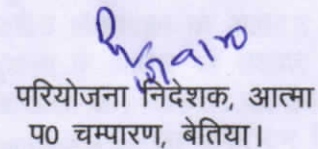 परियोजना निदेशक, आत्मा
प0 चम्पारण, बेतिया।